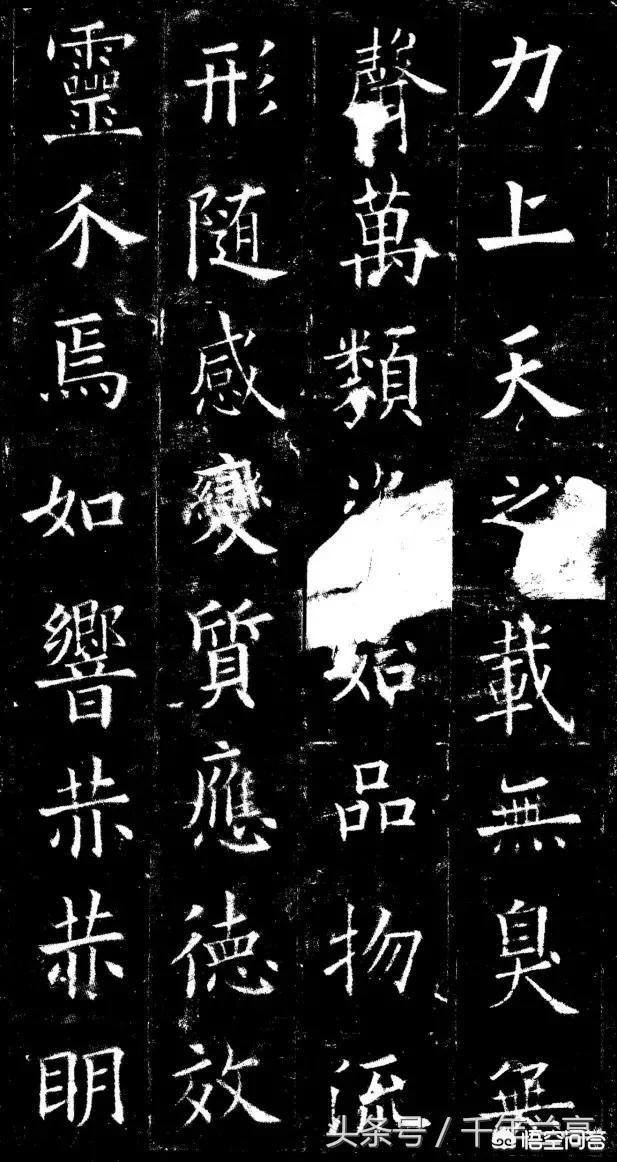 力上天之載無臭無
聲萬類始品物流
形隨感變質應徳效
靈介焉如響赫赫眀
头条号 / 千年兰亭
悟空问答